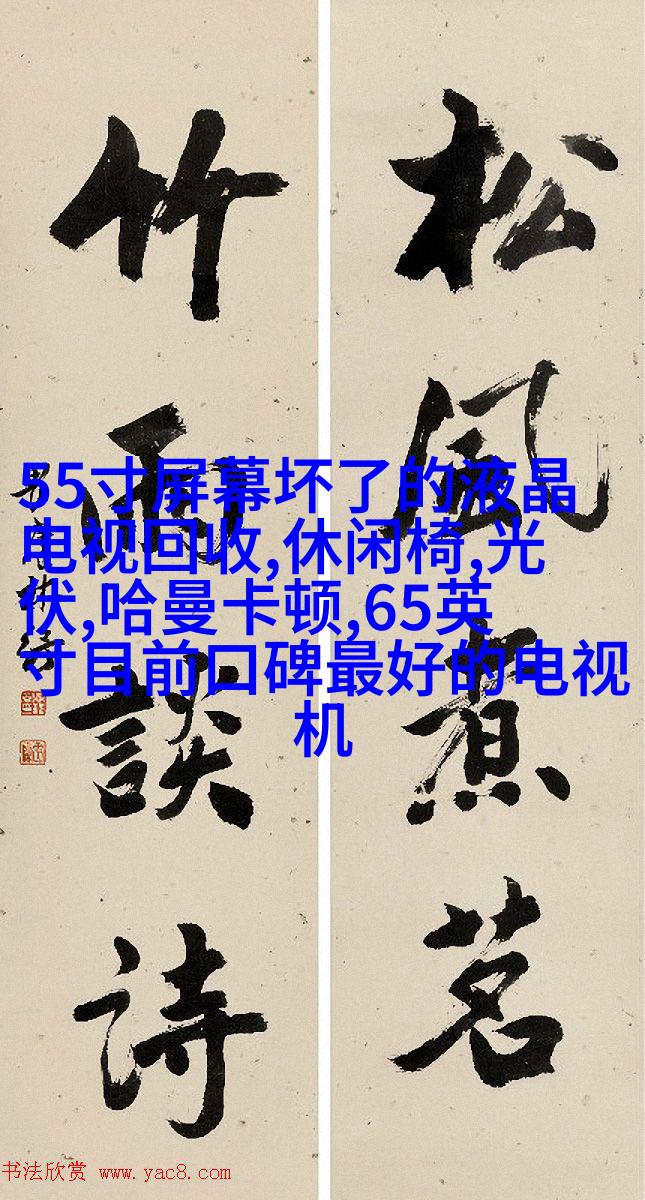 松風煮茗
竹雨談詩
55寸屏幕坏了的液晶
电视回收,休闲椅,光
伏,哈曼卡顿,65英
寸目前口碑最好的电视
机
书法欣赏 www.yac8.com